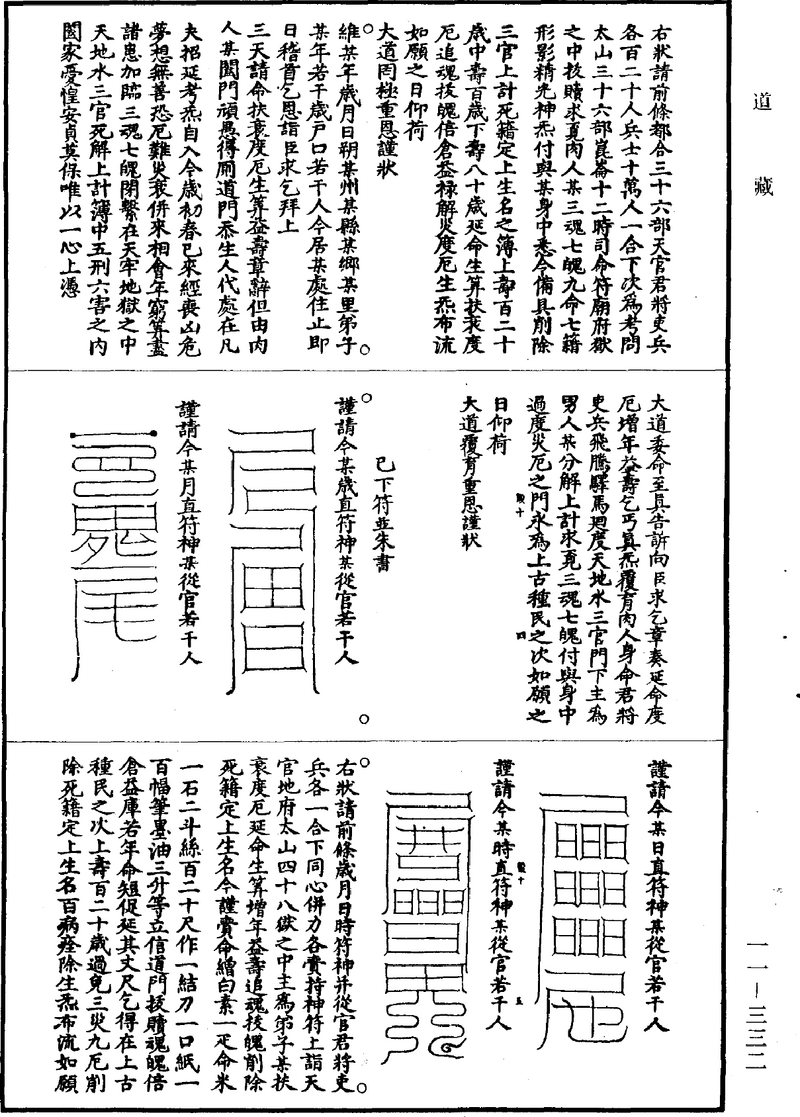 道藏
右狀請前條都合三十六部天官君將吏兵
各百二十人兵士十萬人一合下次為考問
太山三十六部崑崙十二時司命符廟府獄
之中拔贖求覓肉人某三魂七魄九命七籍
形影精光神炁付與某身中悉令備具削除
三官上計死籍定上生名之簿上壽百二十
歲中壽百歲下壽八十歲延命生算扶衰度
厄追魂拔魄倍倉益祿解災度厄生炁布流
如願之日仰荷
大道罔極重恩謹狀
維某年歲月日朔某州某縣某鄉某里弟子
某年若干歲戶口若干人今居某處住止即
日稽首乞恩詣臣求乞拜上
三天請命扶衰度厄生算益壽章辭但由肉
人某闔門頑愚得廁道門忝生人代處在凡
夫招延考炁自入今歲初春已來經喪凶危
夢想無善恐厄難災衰併來相會年窮算盡
諸患加臨三魂七魄閉繫在天牢地獄之中
天地水三官死解上計簿中五刑六害之內
闔家憂惶安貞莫保唯以一心上憑
大道委命至真告訴向臣求乞章奏延命度
厄增年益壽乞丐真炁覆育肉人身命君將
吏兵飛騰驛馬迴度天地水三官門下主為
男人某分解上計求覓三魂七魄付與身中
過度災厄之門永為上古種民之次如願之
日仰荷
大道覆育重恩謹狀
已下符並朱書
謹請今某歲直符神某從官若干人
謹請今某月直符神某從官若干人
謹請今某日直符神某從官若干人
謹請今某時直符神某從官若干人
右狀請前條歲月日時符神并從官君將吏
兵各一合下同心併力各賫持神符上詣天
官地府太山四十八獄之中主為弟子某扶
衰度厄延命生算增年益壽追魂拔魄削除
死籍定上生名今謹賫命繒白素一疋命米
一石二斗絲百二十尺作一結刀一口紙一
百幅筆墨油三升等立信道門拔贖魂魄倍
倉益庫若年命短促延其丈尺乞得在上古
種民之次上壽百二十歲過免三災九厄削
除死籍定上生名百病痊除生炁布流如願
一一—三三二